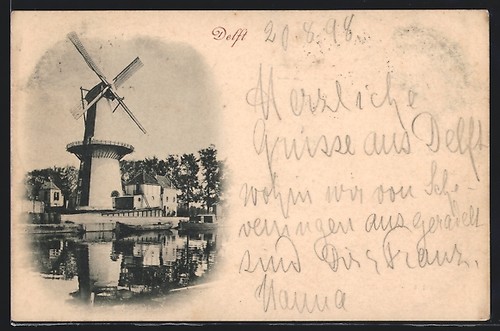 Delft 20.8.98.
Herzliche
Grüsse aus Delft
wohin wir von Sche-
veningen ausgeradelt
sind Dir, Franz,
Hanna